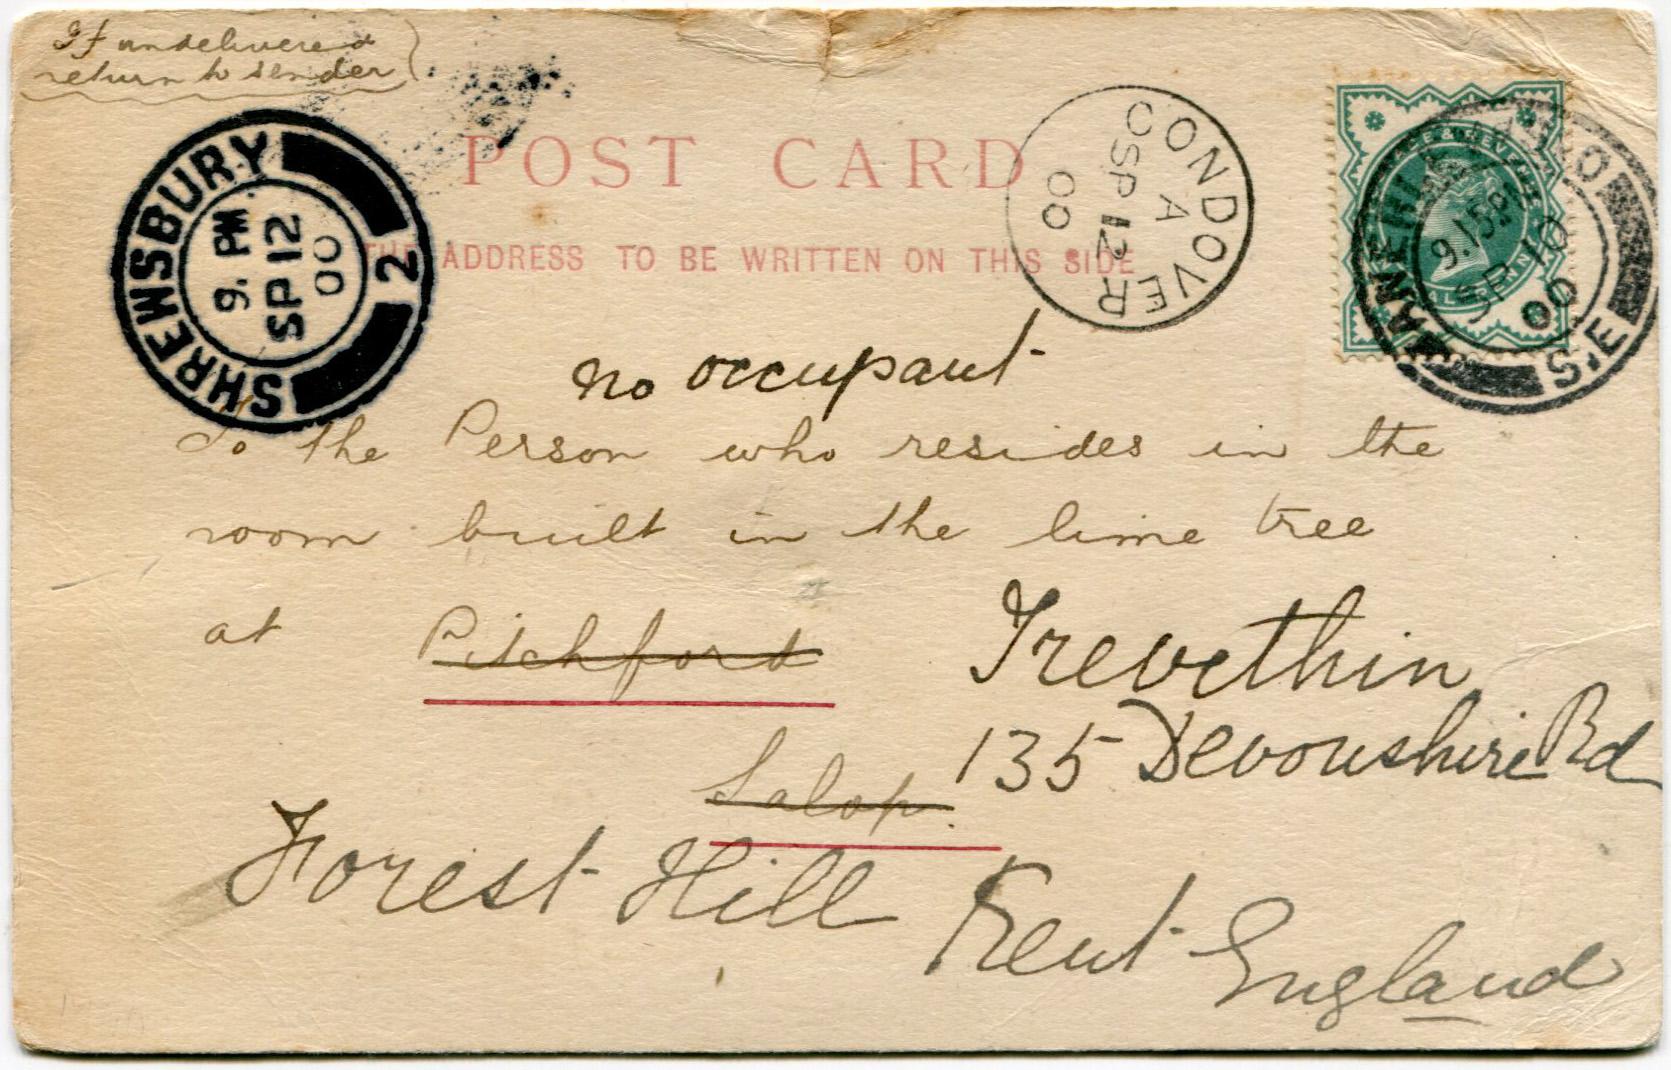 If undelivered
return to sender
POST CARD
THE ADDRESS TO BE WRITTEN ON THIS SIDE
SHREWSBURY
9. PM
SP 12
00
2
CONDOVER
A
SP 12
00
9.15PM
SP 10
00
S.E
no occupant
To the Person who resides in the
room built in the lime tree
at Pitchford
Trevethin
Salop.
135 Devonshire Rd
Forest Hill Kent England